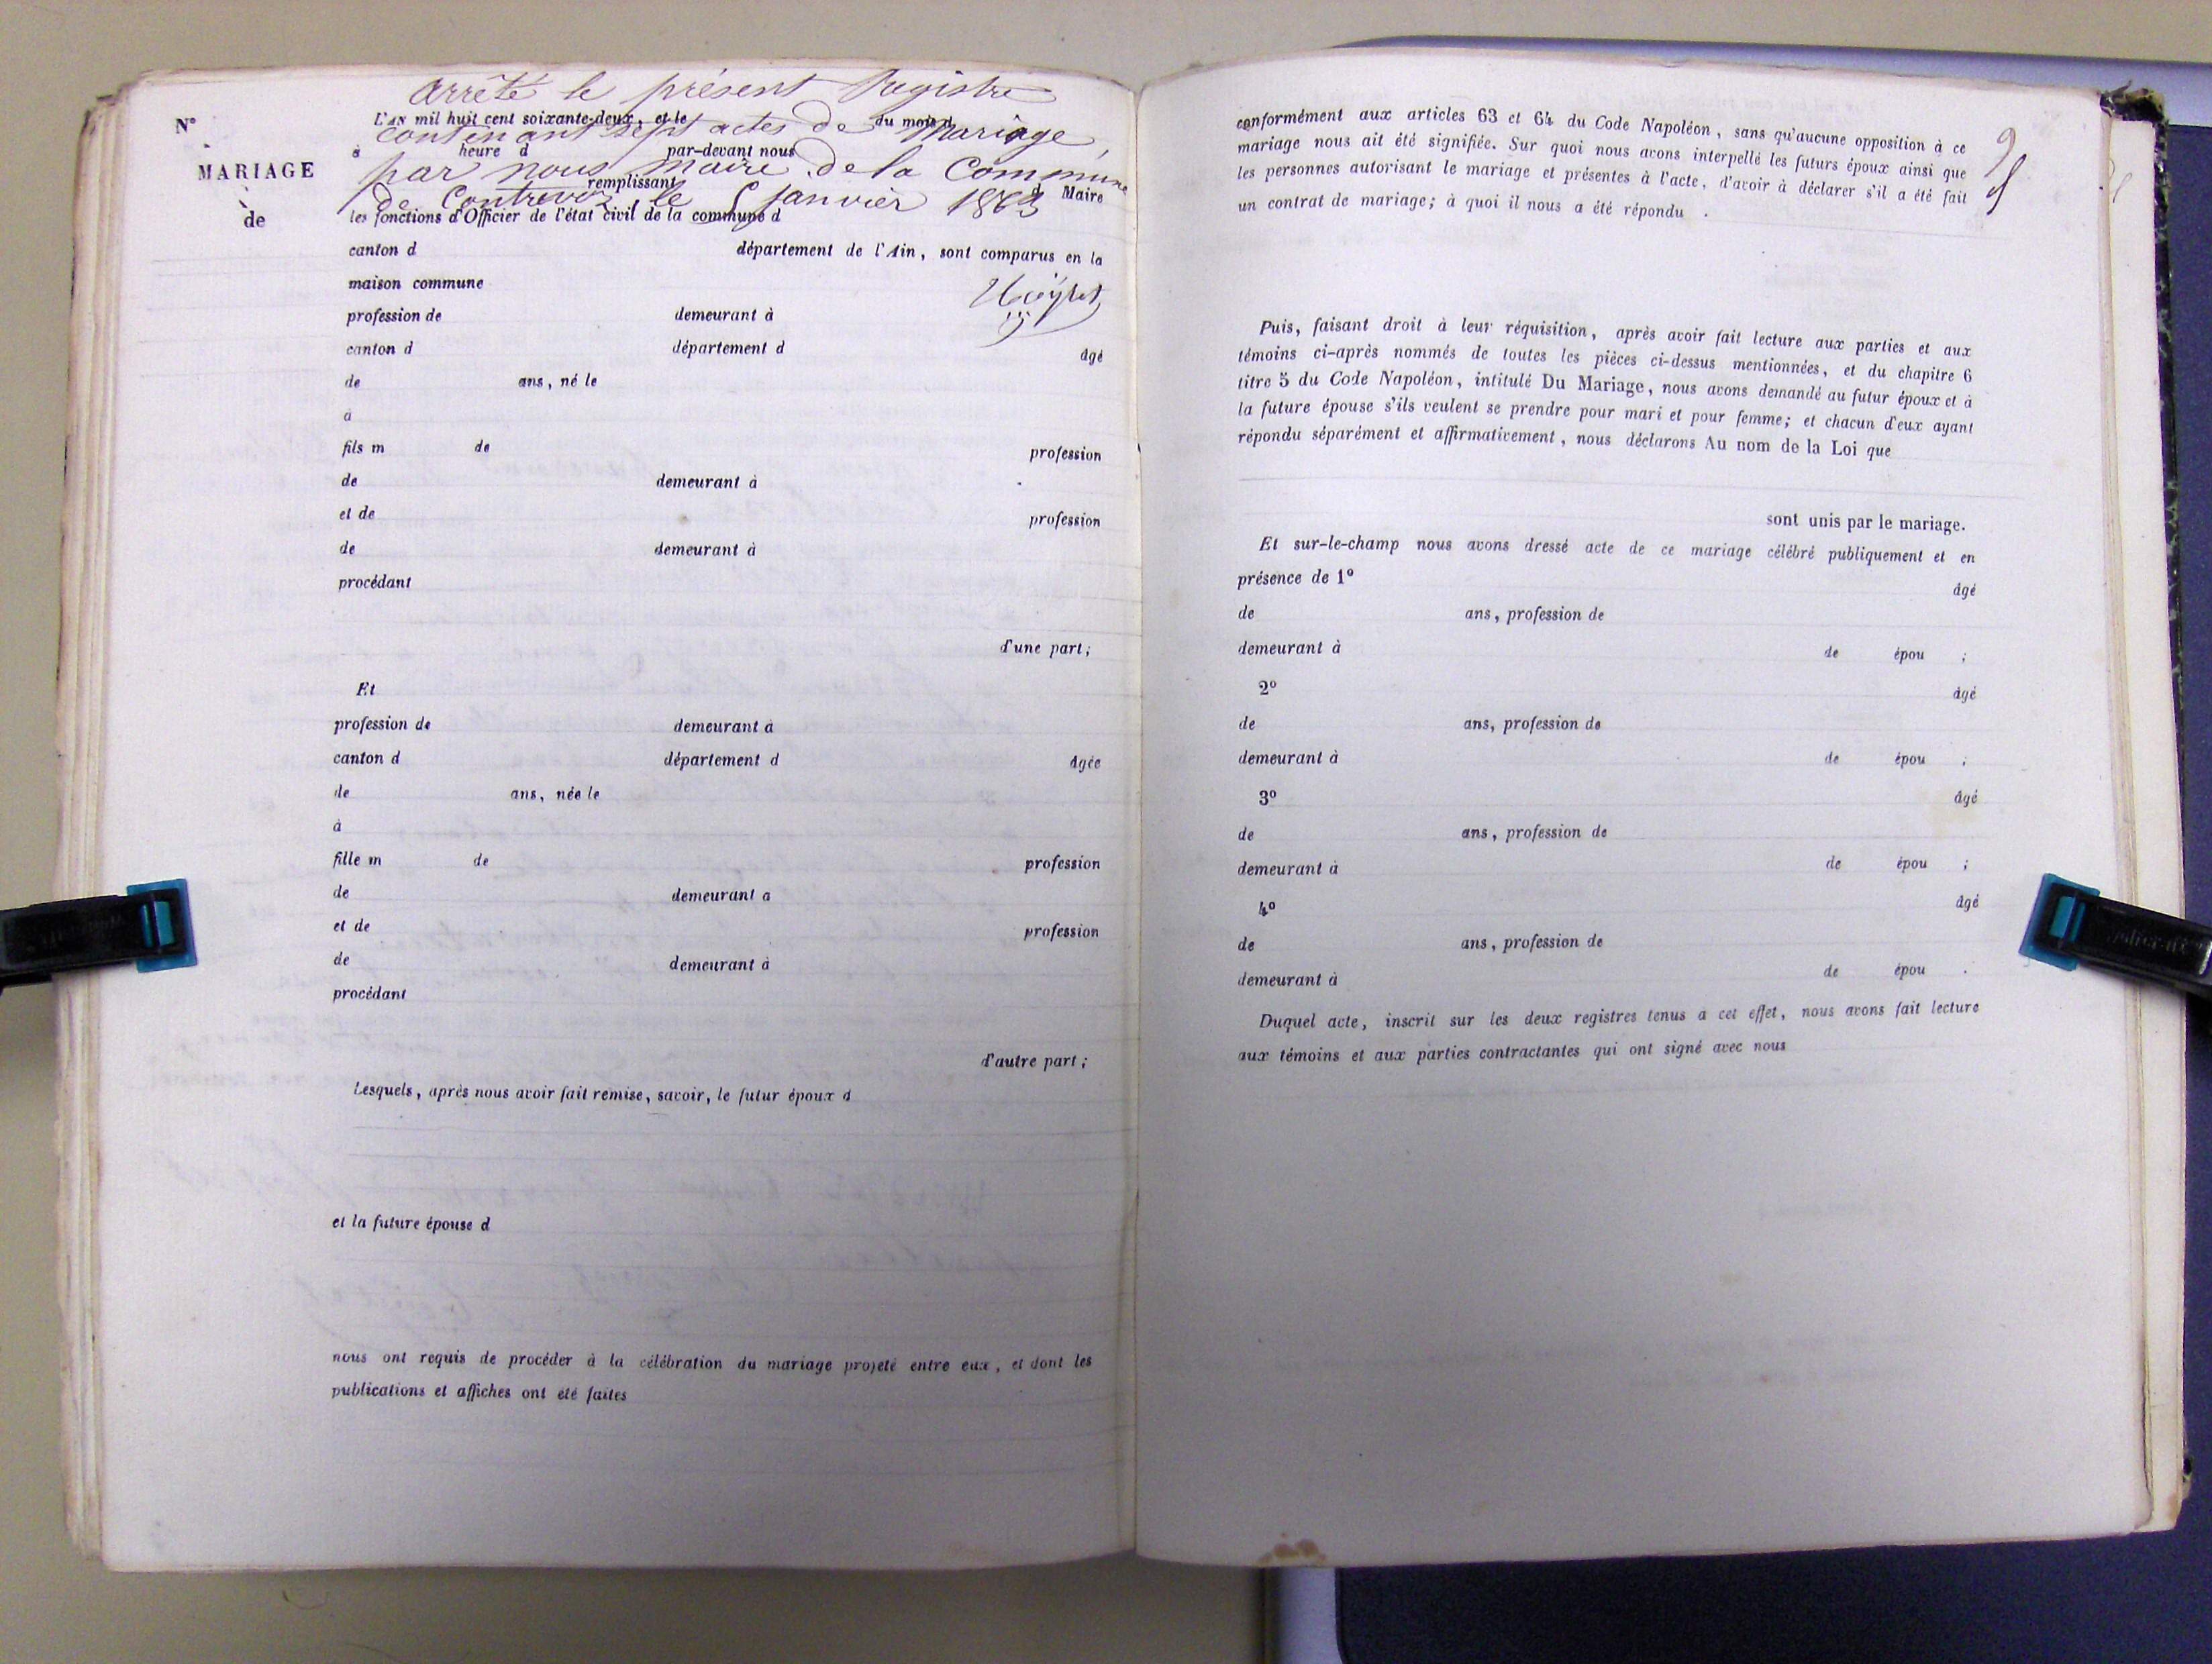 arrêté le présent Registre
N° L'AN mil huit cent soixante-deux, et le du mois d
contenant sept actes de Mariage,
à heure d par-devant nous
MARIAGE
par nous Maire de la Commune
remplissant d Maire
de Contrevoz le janvier 1863
de
les fonctions d'Officier de l'état civil de la commune d
canton d département de l'Ain, sont comparus en la
maison commune
profession de demeurant à
canton d département d âgé
de ans, né le
à
fils m de profession
de demeurant à
et de profession
de demeurant à
procédant
d'une part;
Et
profession de demeurant à
canton d département d âgée
de ans, née le
à
fille m de profession
de demeurant à
et de profession
de demeurant à
procédant
d'autre part;
Lesquels, après nous avoir fait remise, savoir, le futur époux d
et la future épouse d
nous ont requis de procéder à la célébration du mariage projeté entre eux, et dont les
publications et affiches ont été faites
conformément aux articles 63 et 64 du Code Napoléon, sans qu'aucune opposition à ce
mariage nous ait été signifiée. Sur quoi nous avons interpellé les futurs époux ainsi que
les personnes autorisant le mariage et présentes à l'acte, d'avoir à déclarer s'il a été fait
un contrat de mariage; à quoi il nous a été répondu .
Puis, faisant droit à leur réquisition, après avoir fait lecture aux parties et aux
témoins ci-après nommés de toutes les pièces ci-dessus mentionnées, et du chapitre 6
titre 5 du Code Napoléon, intitulé Du Mariage, nous avons demandé au futur époux et à
la future épouse s'ils veulent se prendre pour mari et pour femme; et chacun d'eux ayant
répondu séparément et affirmativement, nous déclarons Au nom de la Loi que
sont unis par le mariage.
Et sur-le-champ nous avons dressé acte de ce mariage célébré publiquement et en
présence de 1° âgé
de ans, profession de
demeurant à de épou ;
2° âgé
de ans, profession de
demeurant à de épou ;
3° âgé
de ans, profession de
demeurant à de épou ;
4° âgé
de ans, profession de
demeurant à de épou .
Duquel acte, inscrit sur les deux registres tenus à cet effet, nous avons fait lecture
aux témoins et aux parties contractantes qui ont signé avec nous